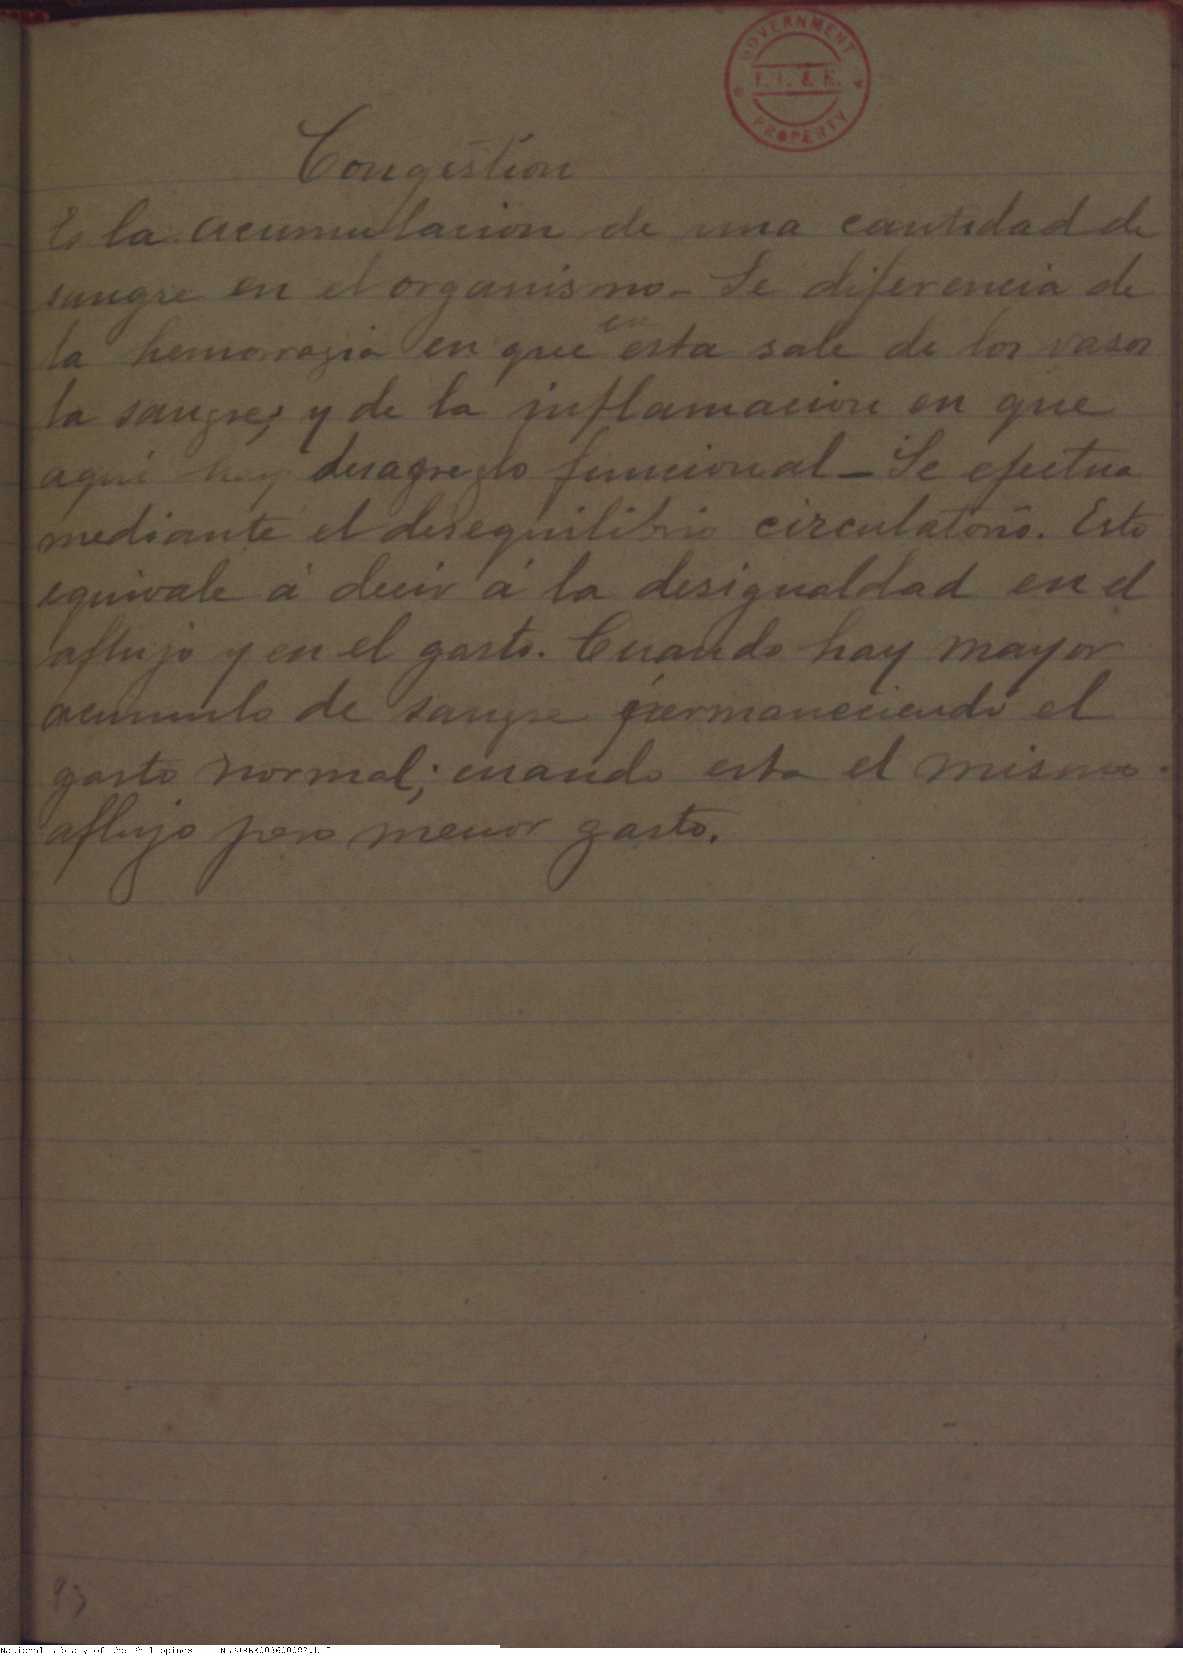 GOVERNMENT
P. I. & R.
PROPERTY
Congestion
Es la acumulacion de una cantidad de
sangre en el organismo_ Se diferencia de
la hemorragia en que en esta sale de los vasos
la sangre; y de la inflamacion en que
aqui hay desagreglo funcional_ Se efectua
mediante el desequilibrio circulatorio. Esto
equivale á decir á la desigualdad en el
aflujo y en el gasto. Cuando hay mayor
acumulo de sangre permaneciendo el
gasto normal; cuando esta el mismo
aflujo pero menor gasto.
93
National Library of the Philippines